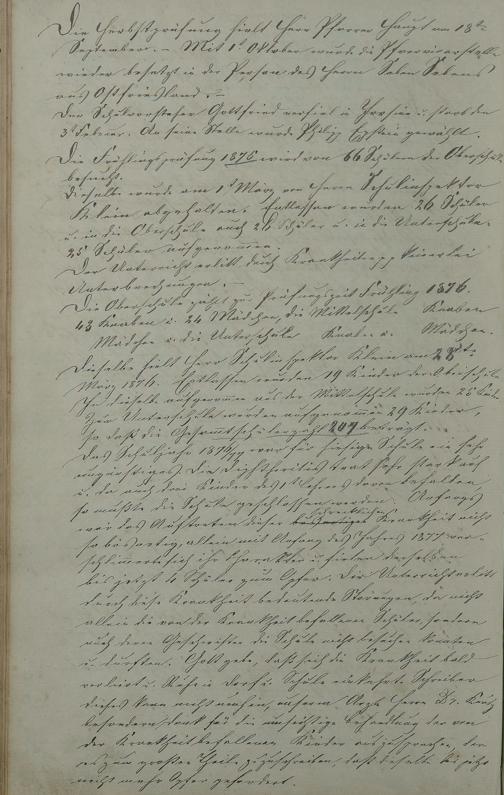 Die Herbstprüfung hielt Herr Pfarrer Haupt am 18ten
September. – Mit 1t Oktober wurde die Pfarrvicarstelle
wieder besetzt in der Person des Herrn
aus Ostfriesland. –
Der Schulvorsteher Gottfried verfiel in Irrsinn u. starb den
3t Februar. An seine Stelle wurde Philipp gewählt.
Die Frühlingsprüfung 1876 wird von 66 Schülern der Oberschule
besucht.
Dieselbe wurde am 1t März von Herrn Schulinspektor
Klein abgehalten. Entlassen wurden 26 Schüler
u. in die Oberschule auch 26 Schüler u. in die Unterschule
25 Schüler aufgenommen.
Der Unterricht erlitt durch Krankheit pp keinerlei
Unterbrechungen. –
Die Oberschule zählt zur Prüfungszeit Frühling 1876.
43 Knaben u. 26 Mädchen, die Mittelschule Knaben
Mädchen u. die Unterschule Knaben u. Mädchen.
Dieselbe hielt Herr Schulinspektor Klein am 28t
März 1876. Entlassen wurden 19 Kinder der Oberschule
In dieselbe aufgenommen aus der Mittelschule wurden 25
Zur Unterschule wurden aufgenommen 29 Kinder,
so daß die Gesamtschülerzahl 207 beträgt.
Das Schuljahr 1876/77 war für hiesige Schule ein sehr
ungünstiges. Die Diphtheritis trat sehr stark auf
u. da auch drei Kinder des 1t Lehrers davon befallen,
so mußte die Schule geschlossen werden. Anfangs
war das Auftreten dieser schrecklichen Krankheit nicht
so bösartig, allein mit Anfang des Jahres 1877 ver-
schlimmerte sich ihr Charakter u. fielen derselben
bis jetzt 4 Schüler zum Opfer. Der Unterricht erlitt
durch diese Krankheit bedeutende Störungen, da nicht
allein die von der Krankheit befallenen Schüler, sondern
auch deren Geschwister die Schule nicht besuchen konnten
u. durften. Gott gebe, daß sich die Krankheit bald
verliert u. Ruhe in Dorf u. Schule einkehrt. Schreiber
dieses kann nicht umhin, unserm Arzte Herrn Dr.
besondern Dank für die umsichtige Behandlung der von
der Krankheit befallenen Kinder auszusprechen, der
es zum großen Theile zuzuschreiben, daß dieselbe bis jetzt
nicht mehr Opfer gefordert.